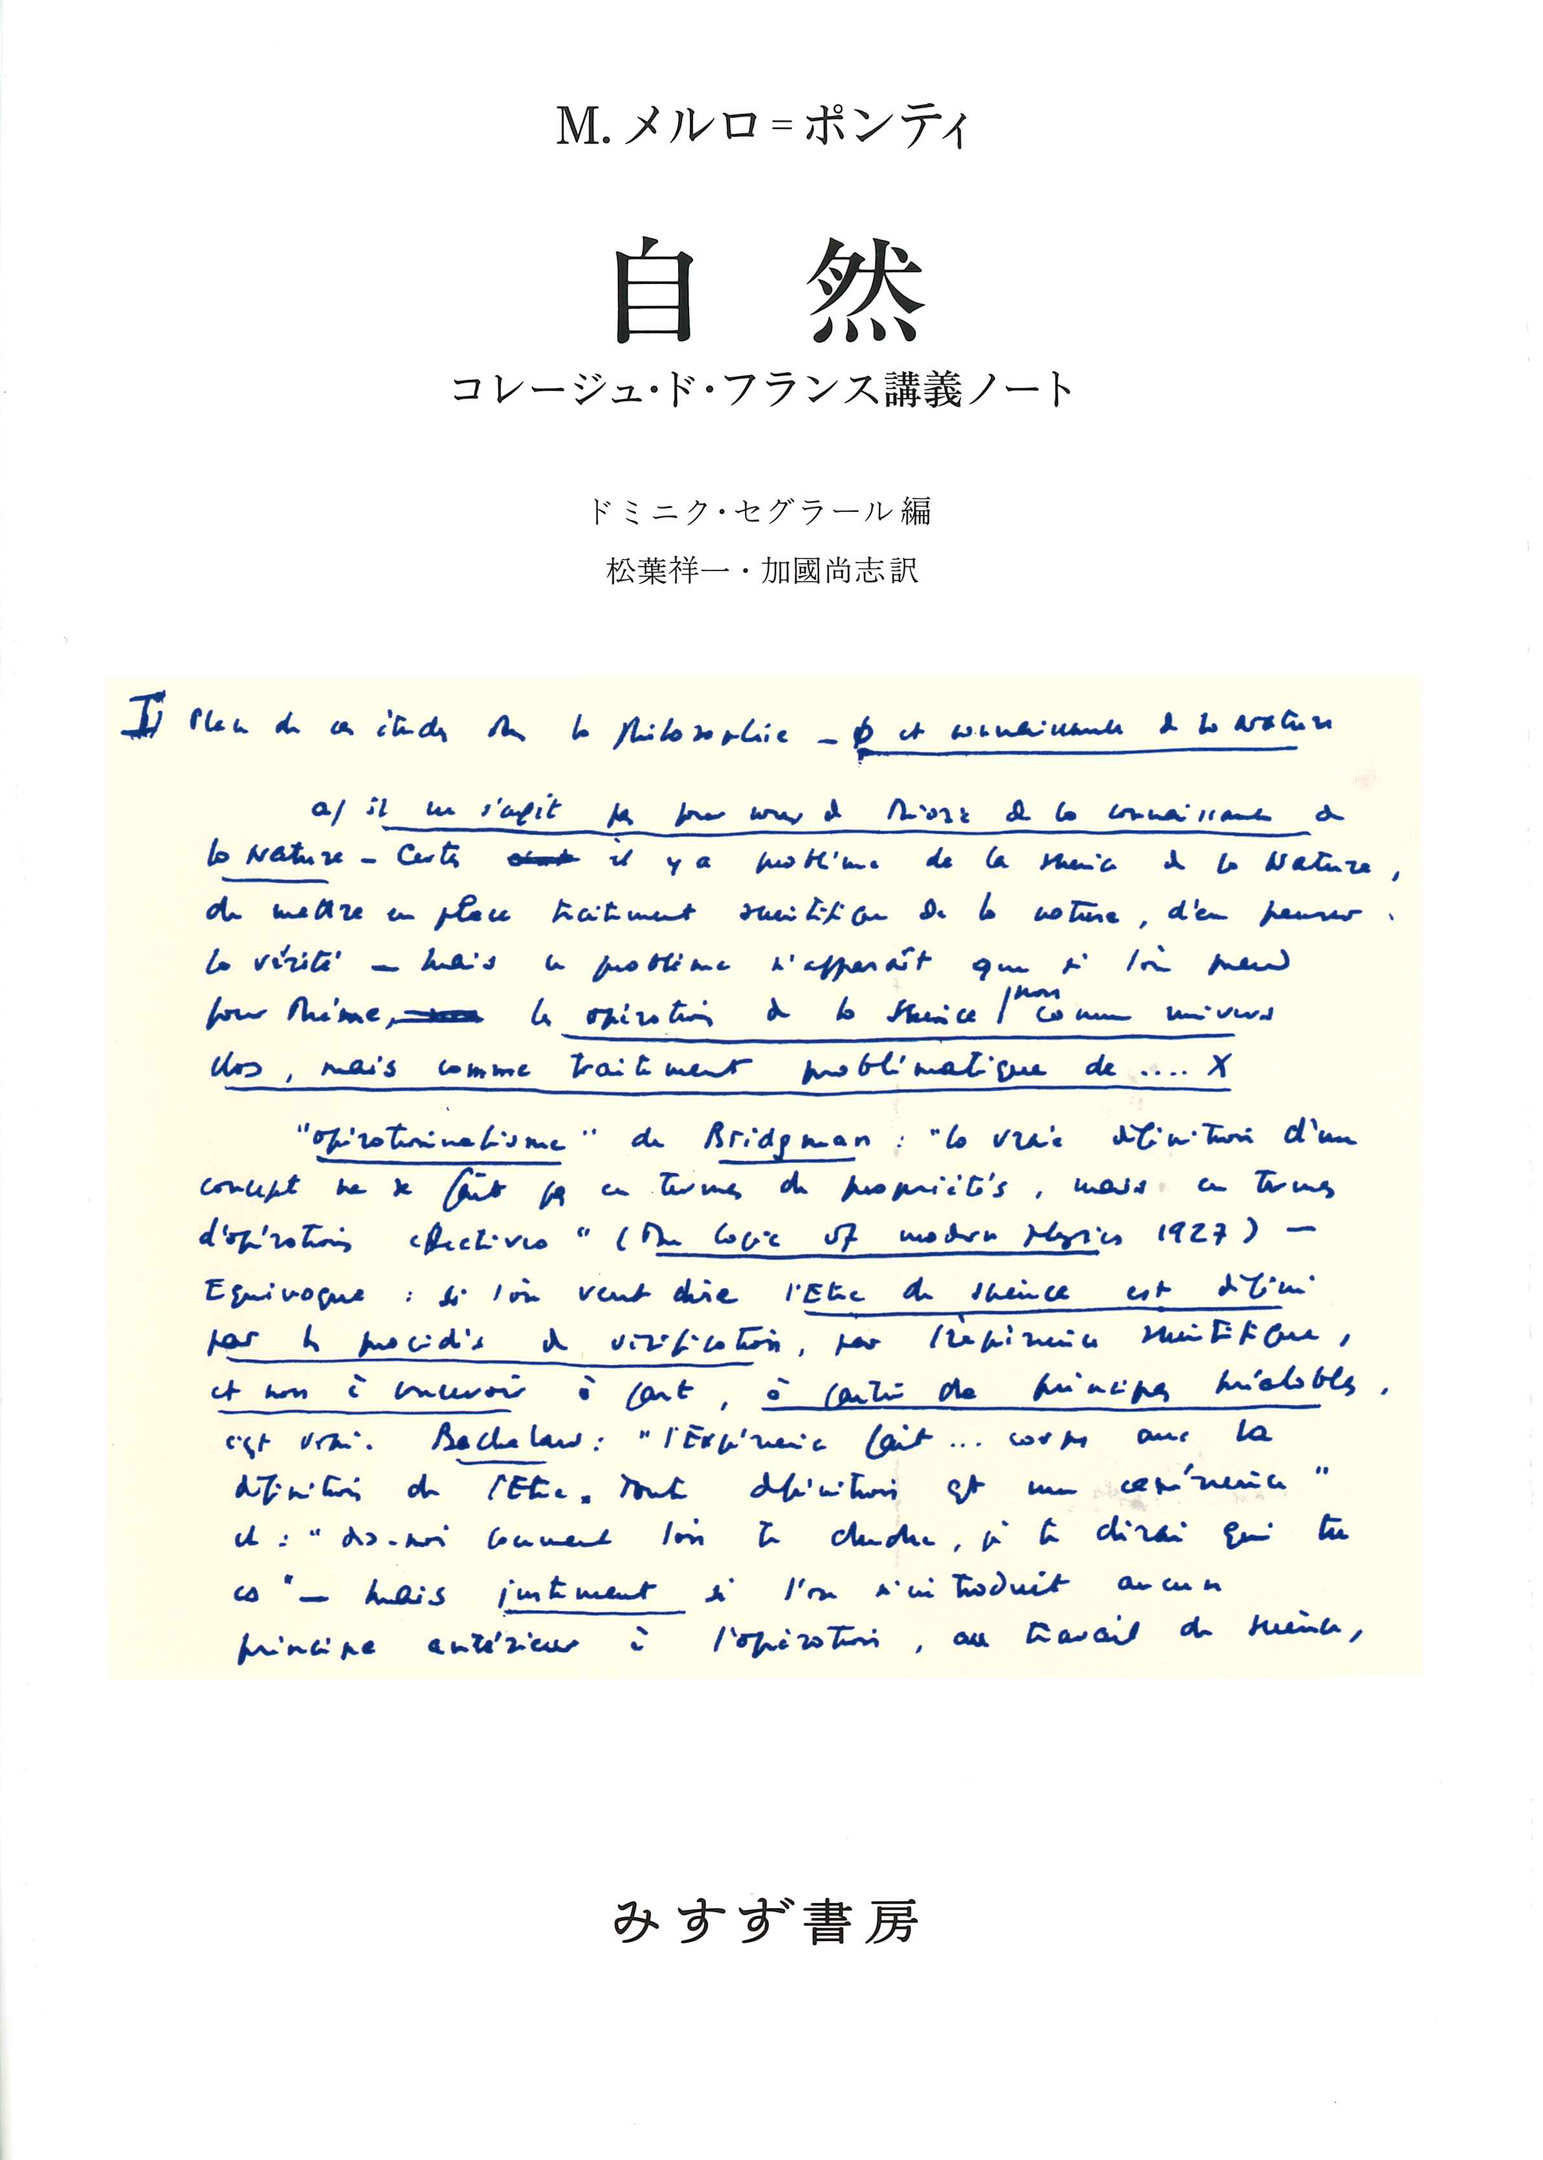 M. メルロ=ポンティ
自然
コレージュ・ド・フランス講義ノート
ドミニク・セグラール編
松葉祥一・加國尚志訳
Plan de ces études sur la philosophie – φ et connaissance de la Nature
a/ il ne s'agit pas pour nous de théorie de la connaissance de
la Nature – Certes il y a problème de la science de la Nature,
de mettre en place traitement scientifique de la nature, d'en penser
la vérité – mais ce problème n'apparaît que si l'on prend
pour thème, les opérations de la science / non comme univers
clos, mais comme traitement problématique de .... X
"opérationnalisme" de Bridgman : "la vraie définition d'un
concept ne se fait pas en termes de propriétés, mais en termes
d'opérations effectives" (The logic of modern physics 1927) –
Equivoque : si l'on veut dire l'Etre de science est défini
par les procédés de vérification, par l'expérience scientifique,
et non à concevoir à part, à partir de principes préalables,
c'est vrai. Bachelard : "l'Expérience fait ... corps avec la
définition de l'Etre. Toute définition est une expérience"
et : "dis-moi comment l'on te cherche, je te dirai qui tu
es" – mais justement si l'on n'introduit aucun
principe antérieur à l'opération, au travail de science,
みすず書房